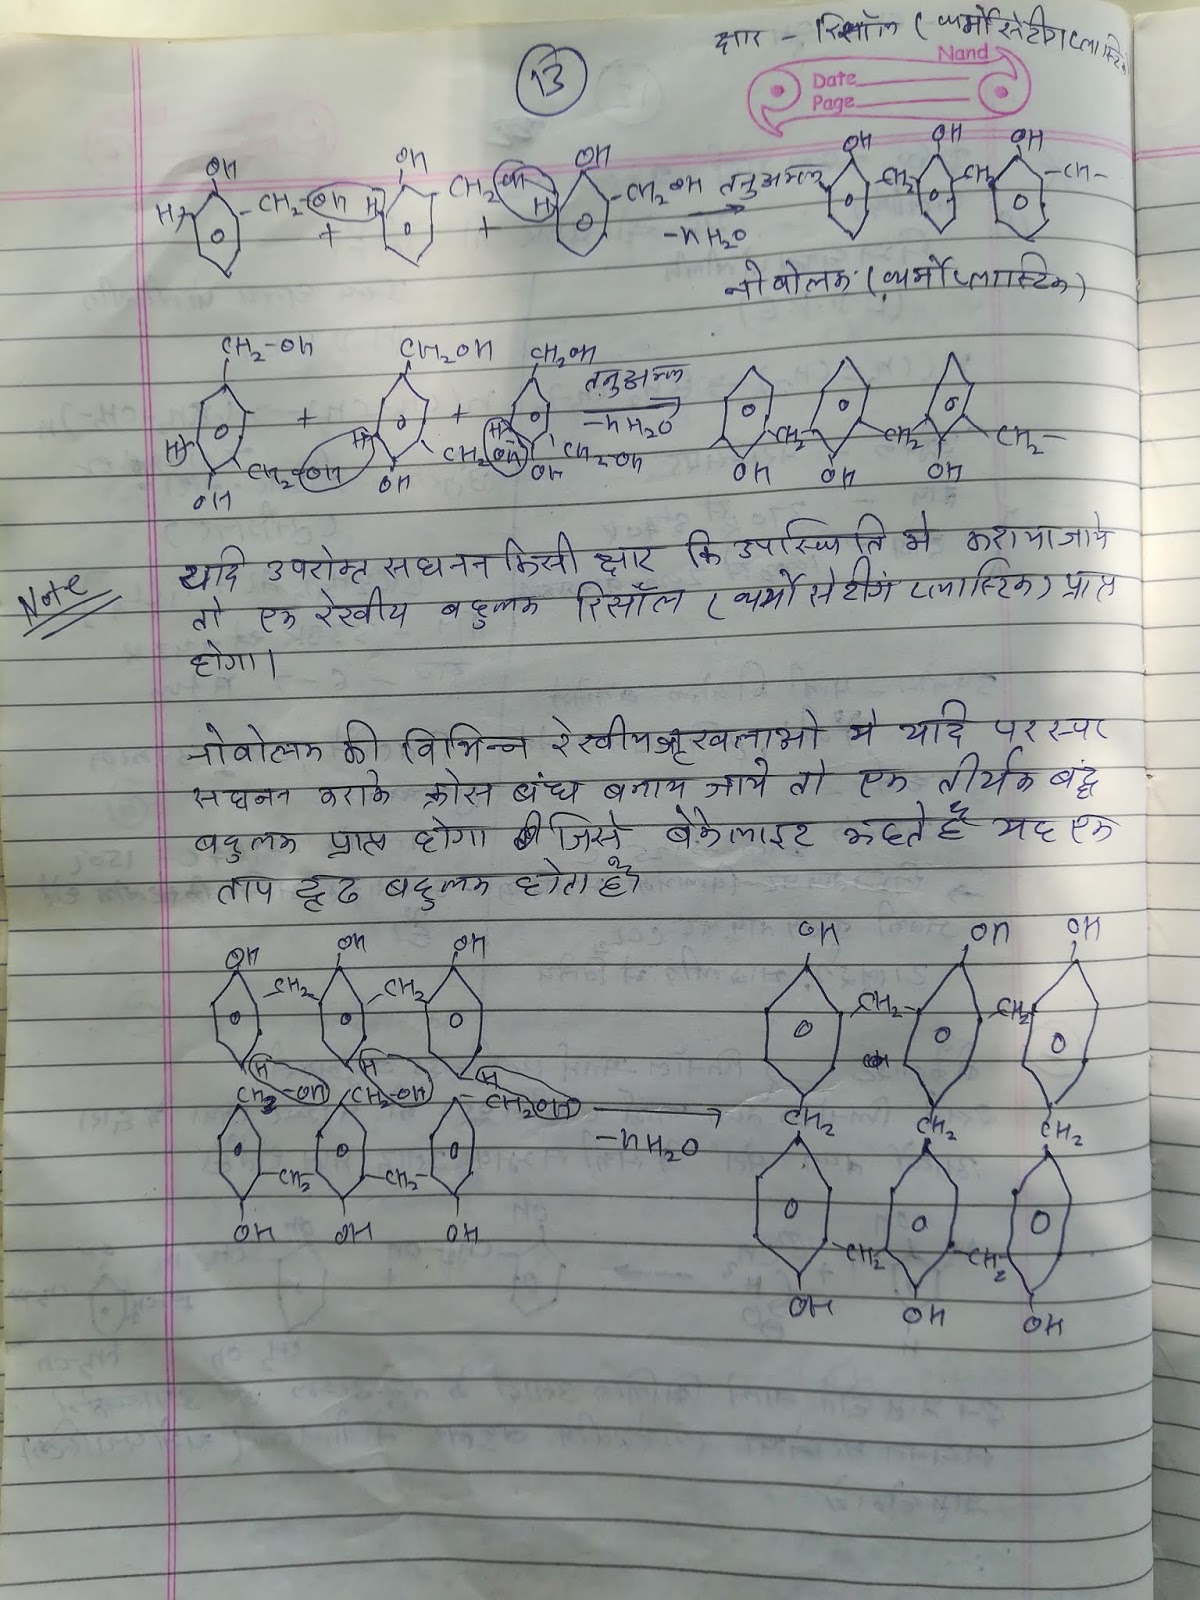 क्षार - रिसॉल (थर्मोसेटींग प्लास्टिक
13
Nand
Date
Page
OH OH OH OH OH OH
H CH2-OH H CH2 OH H CH2OH तनुअम्ल CH2 CH2 -CH-
+ + -nH2O
नोवोलक (थर्मोप्लास्टिक)
CH2-OH CH2OH CH2OH
+ + तनुअम्ल
H H H -nH2O
CH2-OH CH2OH CH2-OH CH2 CH2 CH2-
OH OH OH OH OH OH
Note यदि उपरोक्त संघनन किसी क्षार कि उपस्थिति मे कराया जाये
तो एक रेखीय बहुलक रिसॉल (थर्मोसेटींग प्लास्टिक) प्राप्त
होगा।
नोवोलक की विभिन्न रेखीय श्रृखलाओ मे यदि परस्पर
सघनन कराके क्रोस बंध बनाय जाये तो एक तीर्यक बद्ध
बहुलक प्राप्त होगा जिसे बेकैलाइट कहते है यह एक
ताप दृढ बहुलक होता है
OH OH OH OH OH OH
CH2 CH2 CH2- CH2
H H H
CH2-OH CH2-OH CH2OH CH2 CH2 CH2
-nH2O
-CH2 -CH2- -CH2 -CH2
OH OH OH OH OH OH